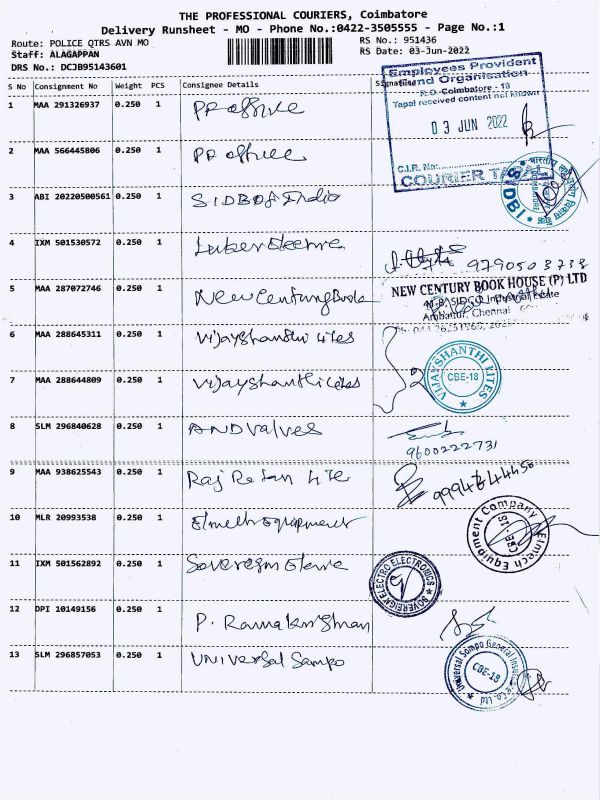 THE PROFESSIONAL COURIERS, Coimbatore
Delivery Runsheet - MO - Phone No.:0422-3505555 - Page No.:1
Route: POLICE QTRS AVN MO
RS No.: 951436
Staff: ALAGAPPAN
RS Date: 03-Jun-2022
DRS No.: DCJB95143601
S No Consignment No Weight PCS Consignee Details Signature
1 MAA 291326937 0.250 1 PF office
2 MAA 566445806 0.250 1 PF office
3 ABI 20220500561 0.250 1 SIDB of India
4 IXM 501530572 0.250 1
9790503738
5 MAA 287072746 0.250 1 New Century Book
6 MAA 288645311 0.250 1 Vijayshanthi Lites
7 MAA 288644809 0.250 1 Vijayshanthi Lites
8 SLM 296840628 0.250 1 AND Valves
9600222731
9 MAA 938625543 0.250 1 Raj Ratan Lite
10 MLR 20993538 0.250 1 Elmech Equipment
11 IXM 501562892 0.250 1 Sovereign
12 DPI 10149156 0.250 1 P. Ramakrishnan
13 SLM 296857053 0.250 1 Universal Sampo
Employees Provident
Fund Organisation
R.O. Coimbatore - 18
Tapal received content not known
03 JUN 2022
C.I.R. No:
COURIER TAPAL
SIDBI
NEW CENTURY BOOK HOUSE (P) LTD
41-B, SIDCO Industrial Estate
Ambattur, Chennai
VIJAYSHANTHI LITES
CBE-18
Elmech Equipment Company
CBE-18
SOVEREIGN ELECTRO ELECTRONICS
Universal Sompo General Insurance Co. Ltd
CBE-18